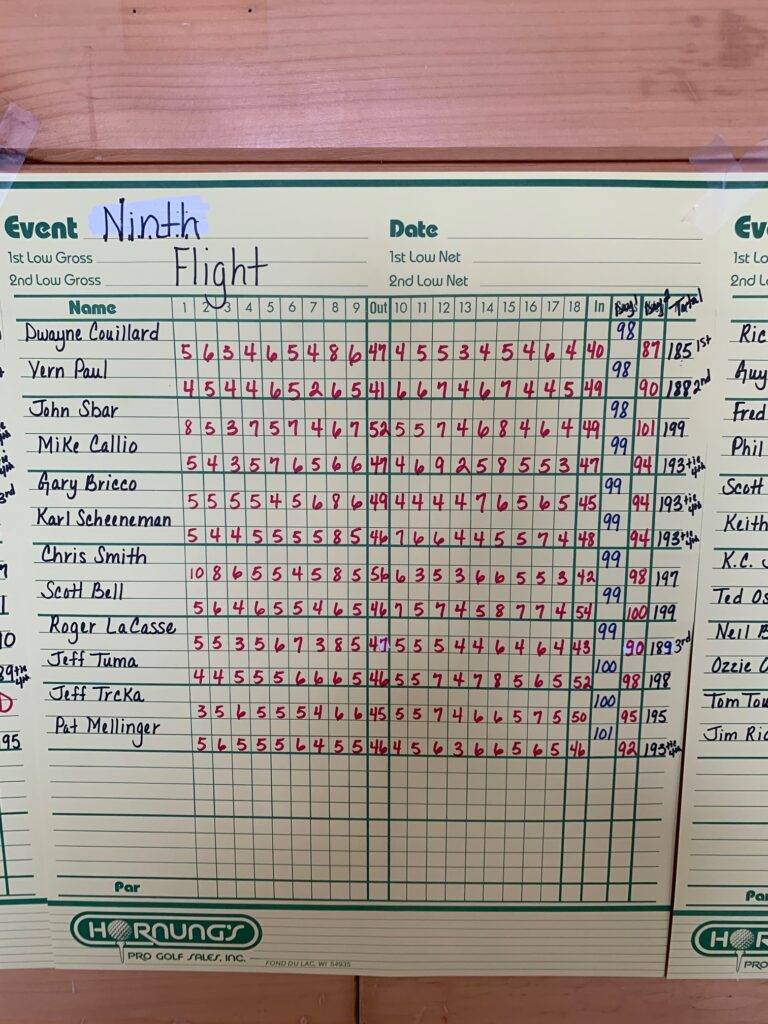 Event Ninth Date Ev
1st Low Gross Flight 1st Low Net 1st Lo
2nd Low Gross 2nd Low Net 2nd Lo
Name 1 2 3 4 5 6 7 8 9 Out 10 11 12 13 14 15 16 17 18 In Total
Dwayne Couillard 98 Ric
5 6 3 4 6 5 4 8 6 47 4 5 5 3 4 5 4 6 4 40 87 185 1st
Vern Paul 98 Guy
4 5 4 4 6 5 2 6 5 41 6 6 7 4 6 7 4 4 5 49 90 188 2nd
John Sbar 98 Fred
8 5 3 7 5 7 4 6 7 52 5 5 7 4 6 8 4 6 4 49 101 199
Mike Callio 99 Phil
5 4 3 5 7 6 5 6 6 47 4 6 9 2 5 8 5 5 3 47 94 193 tie 4th
Gary Bricco 99 Scott
5 5 5 5 4 5 6 8 6 49 4 4 4 4 7 6 5 6 5 45 94 193 tie 4th
Karl Scheeneman 99 Keith
5 4 4 5 5 5 5 8 5 46 7 6 6 4 4 5 5 7 4 48 94 193 tie 4th
Chris Smith 99 K.C.
10 8 6 5 5 4 5 8 5 56 6 3 5 3 6 6 5 5 3 42 98 197
Scott Bell 99 Ted Os
5 6 4 6 5 5 4 6 5 46 7 5 7 4 5 8 7 7 4 54 100 199
Roger LaCasse 99 Neil B
5 5 3 5 6 7 3 8 5 47 5 5 5 4 4 6 4 6 4 43 90 189 3rd
Jeff Tuma 100 Ozzie
4 4 5 5 5 6 6 6 5 46 5 5 7 4 7 8 5 6 5 52 98 198
Jeff Trcka 100 Tom Tou
3 5 6 5 5 5 4 6 6 45 5 5 7 4 6 6 5 7 5 50 95 195
Pat Mellinger 101 Jim Ric
95 5 6 5 5 5 6 4 5 5 46 4 5 6 3 6 6 5 6 5 46 92 193 tie 4th
Par Par
HORNUNG'S HO
PRO GOLF SALES, INC. FOND DU LAC, WI 54935 PRO